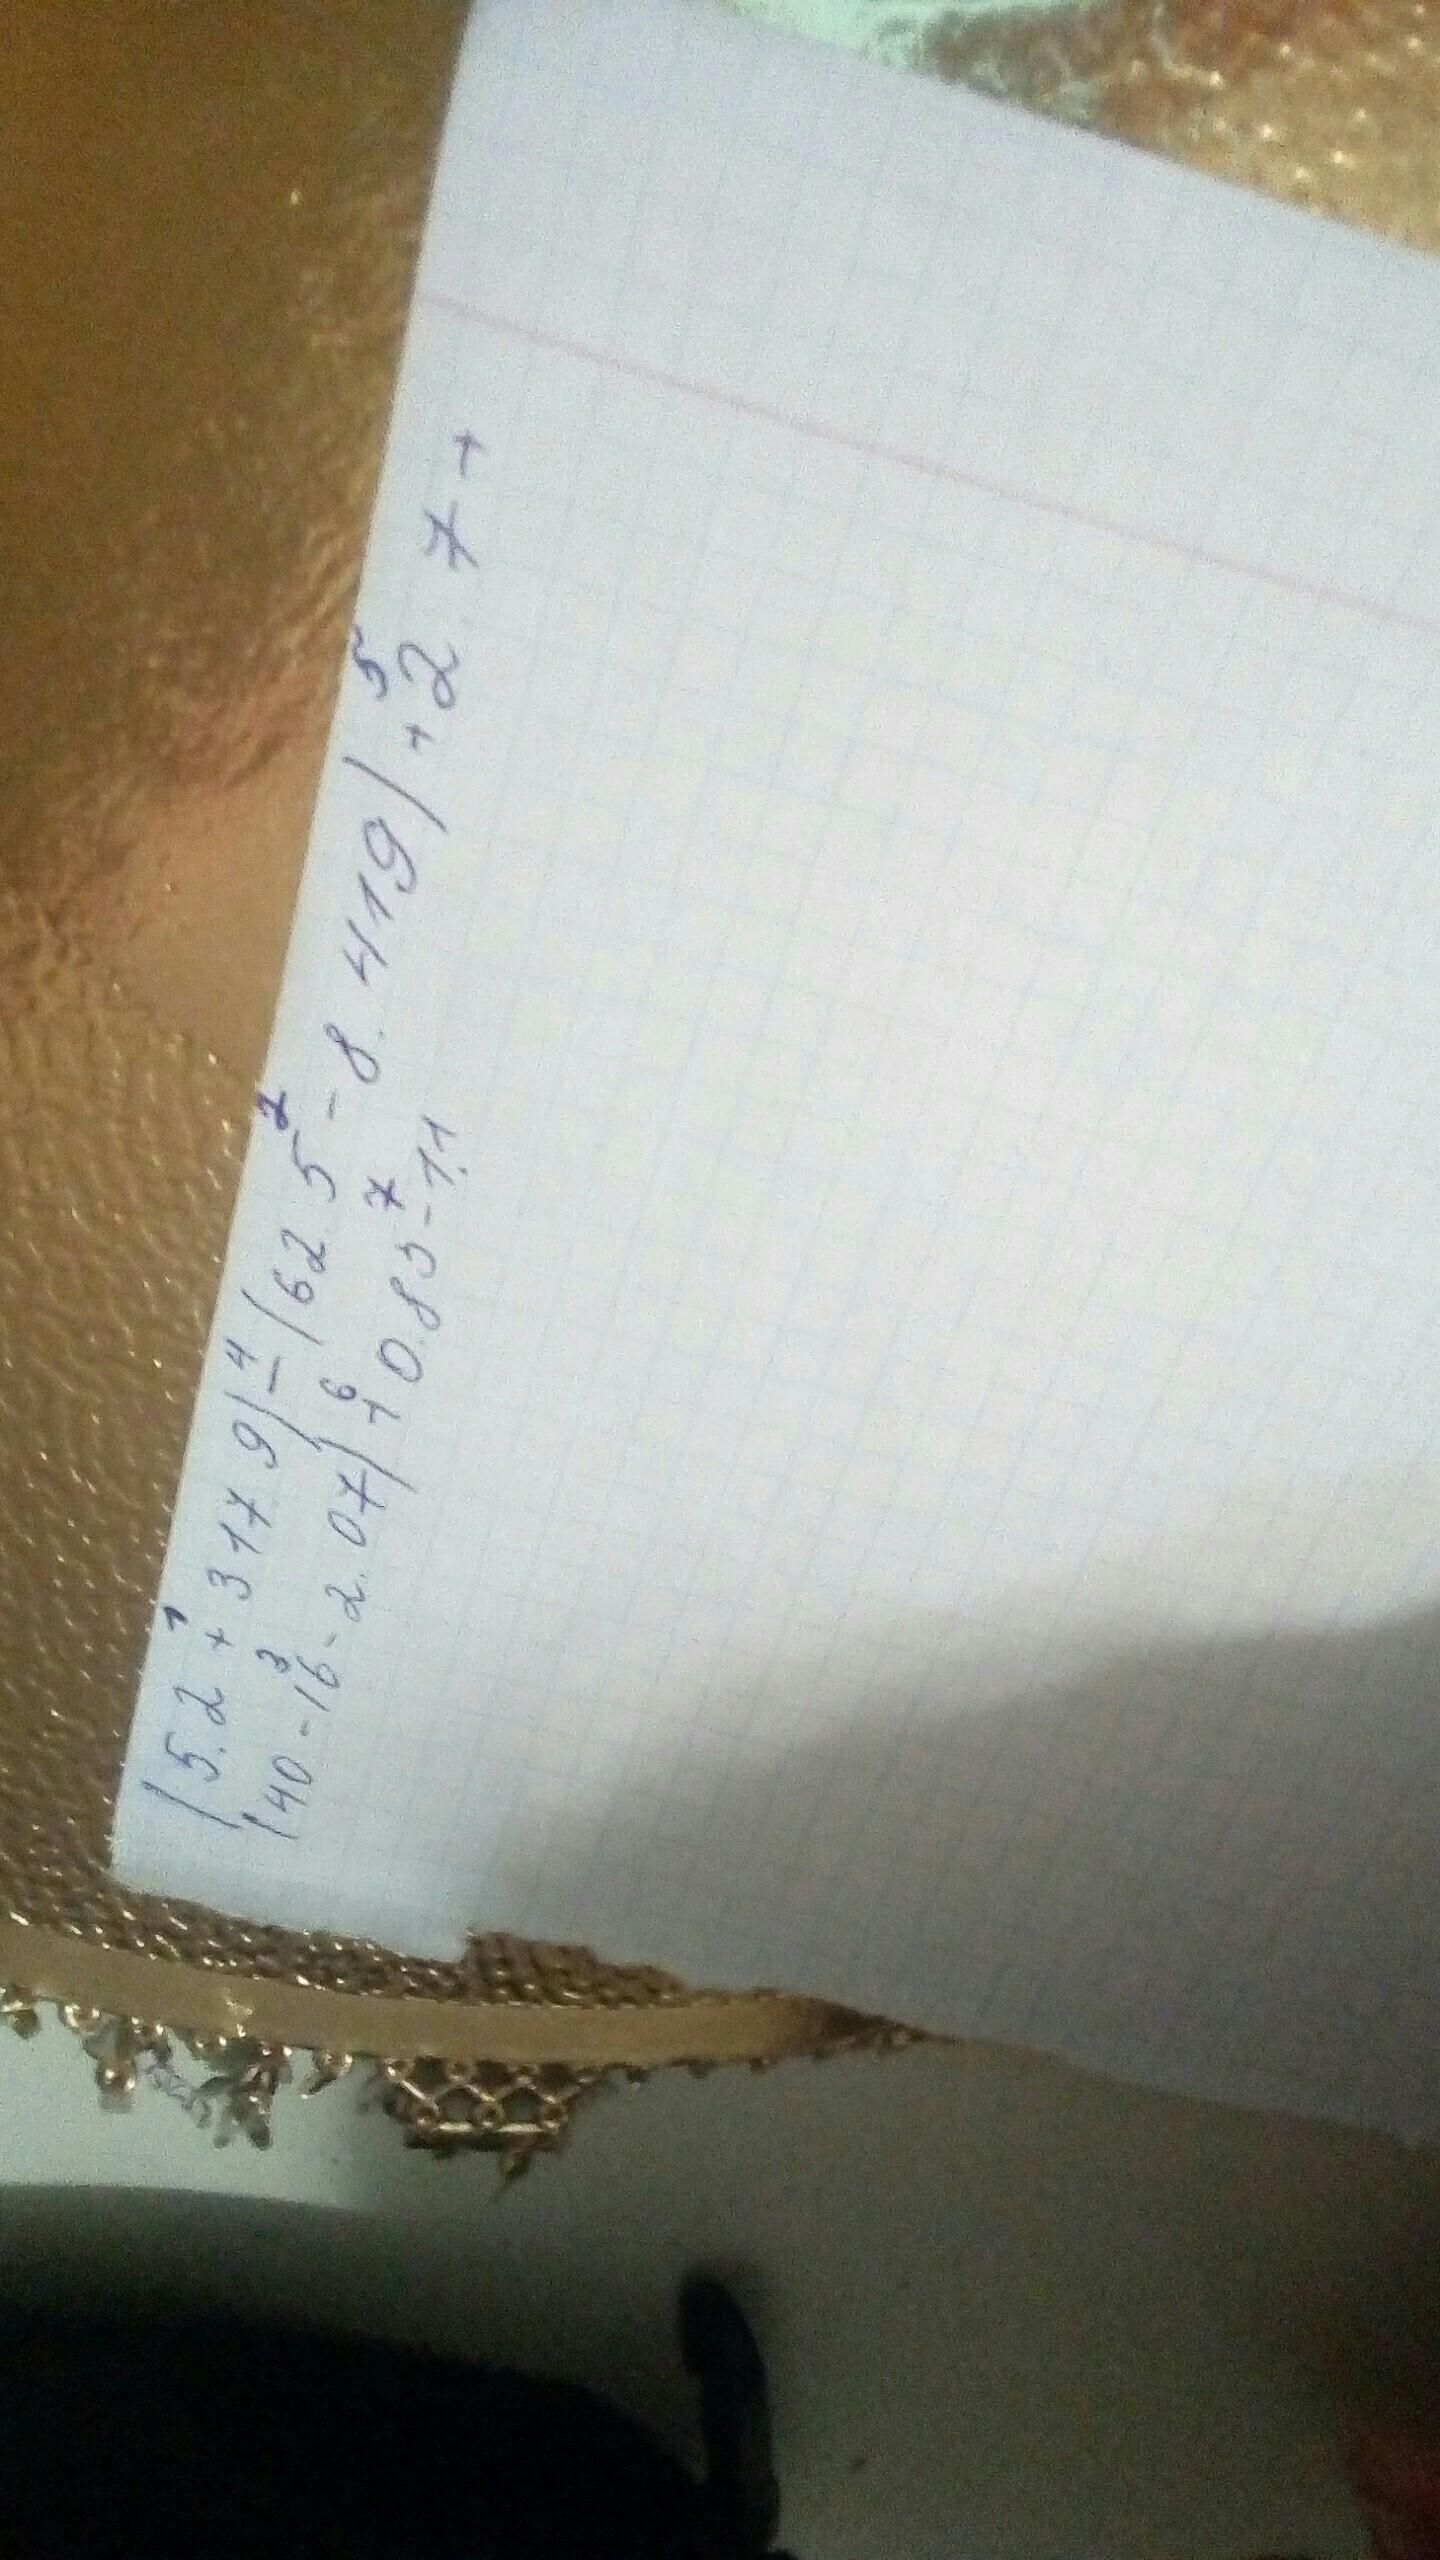 (5.2 + 317.9) - (62.5 - 8.419) + 2.7 +
(40 - 16 - 2.07) + 0.85 - 1.1